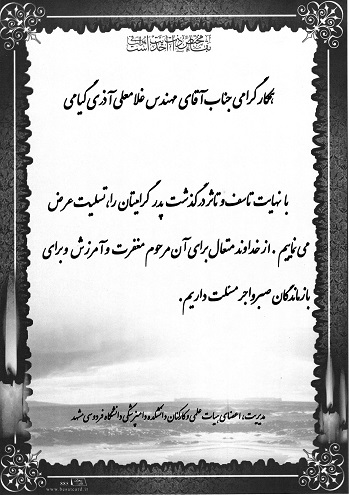 همکار گرامی جناب آقای مهندس غلامعلی آذری گیامی
با نهایت تاسف و تاثر درگذشت پدر گرامیتان را، تسلیت عرض
می نماییم . از خداوند متعال برای آن مرحوم مغفرت و آمرزش و برای
بازماندگان صبر و اجر مسئلت داریم .
مدیریت، اعضای هیات علمی و کارکنان دانشکده دامپزشکی دانشگاه فردوسی مشهد